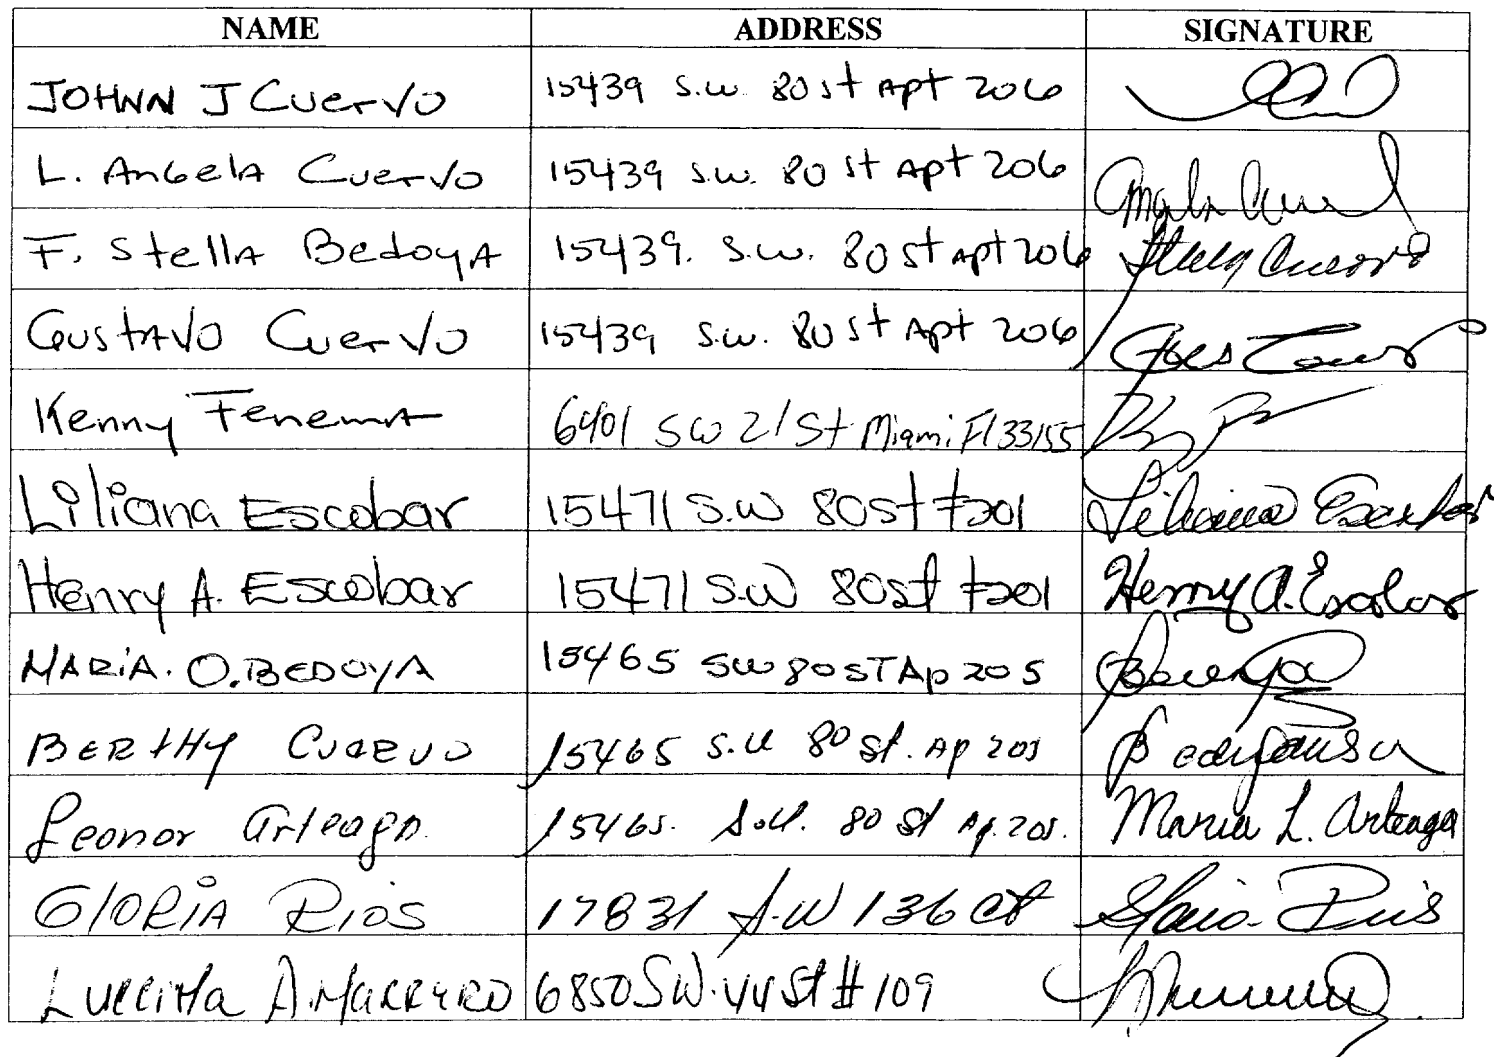 NAME ADDRESS SIGNATURE
JOHNN J Cuervo 15439 S.W. 80 st Apt 206
L. Angela Cuervo 15439 S.W. 80 st Apt 206
F. Stella Bedoya 15439. S.W. 80 st Apt 206
Gustavo Cuervo 15439 S.W. 80 st Apt 206
Kenny Fenema 6401 SW 21 St Miami Fl 33155
Liliana Escobar 15471 S.W 80 st #201 Liliana Escobar
Henry A. Escobar 15471 S.W 80 st #201 Henry A. Escobar
MARiA. O. BEDOYA 15465 SW 80 ST Ap 205
BERtHy CUERVO 15465 S.W 80 st. Ap 205
Leonor Arteaga. 15465. S.W. 80 st Ap. 205. Maria L. Arteaga
GloRiA Rios 17831 S.W 136 ct Gloria Rios
A. Marrero 6850 SW. 44 St # 109